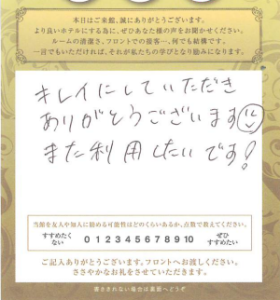 本日はご来館、誠にありがとうございます。
より良いホテルにする為に、ぜひあなた様の声をお聞かせください。
ルームの清潔さ、フロントでの接客…何でも結構です。
一言でもいただければ、それが私たちの学びとなり励みになります。
キレイにしていただき
ありがとうございます
また利用したいです!
当館を友人や知人に勧める可能性はどのくらいあるか、点数で教えてください。
すすめたくない 0 1 2 3 4 5 6 7 8 9 10 ぜひすすめたい
ご記入ありがとうございます。フロントへお渡しください。
ささやかなお礼をさせていただきます。
書ききれない場合は裏面へどうぞ